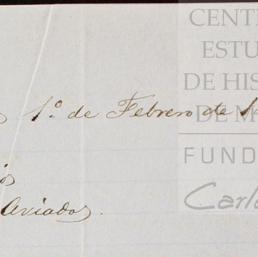 CENT
ESTU
DE HIS
DE M
FUND
Carl
1º de Febrero de 1
Aviados.